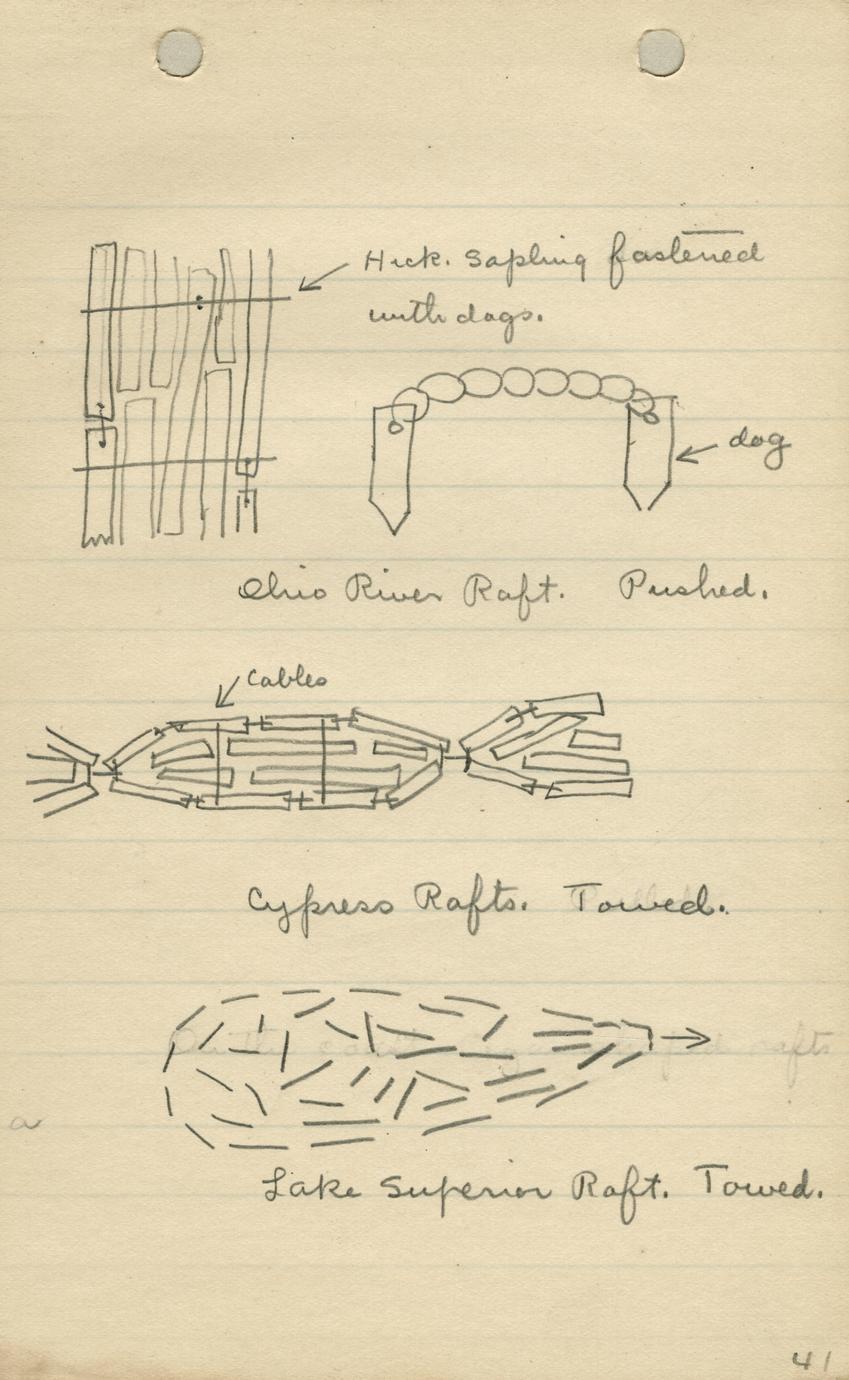 Hick. Sapling fastened
with dogs.
dog
Ohio River Raft. Pushed.
Cables
Cypress Rafts. Towed.
rafts
Lake Superior Raft. Towed.
41